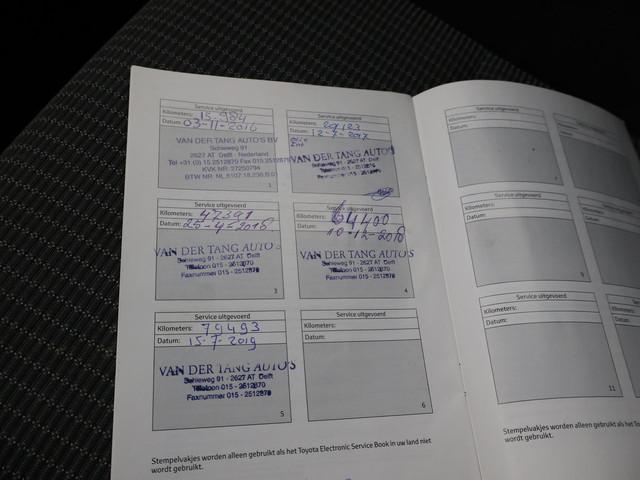 Service uitgevoerd
Kilometers: 15.984
Datum: 03-11-2016
VAN DER TANG AUTO'S BV
Schieweg 91
2627 AT Delft - Nederland
Tel +31 (0) 15 2512870 Fax 015 2512879
KVK NR: 27250794
BTW NR: NL.8107.18.236.B.01
1
Service uitgevoerd
Kilometers:
Datum: 12-7-2017
VAN DER TANG AUTO'S
Schieweg 91 - 2627 AT Delft
Service uitgevoerd
Kilometers: 47391
Datum: 25-4-2018
VAN DER TANG AUTO'S
Schieweg 91 - 2627 AT Delft
Telefoon 015 - 2512870
Faxnummer 015 - 2512879
3
Service uitgevoerd
Kilometers: 64400
Datum: 10-12-2018
VAN DER TANG AUTO'S
Schieweg 91 - 2627 AT Delft
Telefoon 015 - 2512870
Faxnummer 015 - 2512879
4
Service uitgevoerd
Kilometers: 79493
Datum: 15-7-2019
VAN DER TANG AUTO'S
Schieweg 91 - 2627 AT Delft
Telefoon 015 - 2512870
Faxnummer 015 - 2512879
5
Service uitgevoerd
Kilometers:
Datum:
6
Stempelvakjes worden alleen gebruikt als het Toyota Electronic Service Book in uw land niet
wordt gebruikt.
Service uitgevoerd
Kilometers:
Datum:
7
Service uitgevoerd
Kilometers:
Datum:
9
Service uitgevoerd
Kilometers:
Datum:
11
Stempelvakjes worden alleen gebruikt als het Toyota
wordt gebruikt.